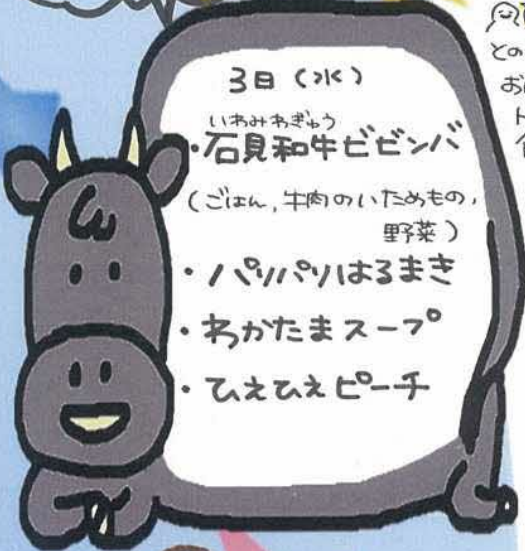 3日(水)
いわみわぎゅう
・石見和牛ビビンバ
(ごはん,牛肉のいためもの,
野菜)
・パリパリはるまき
・わかたまスープ
・ひえひえピーチ
との